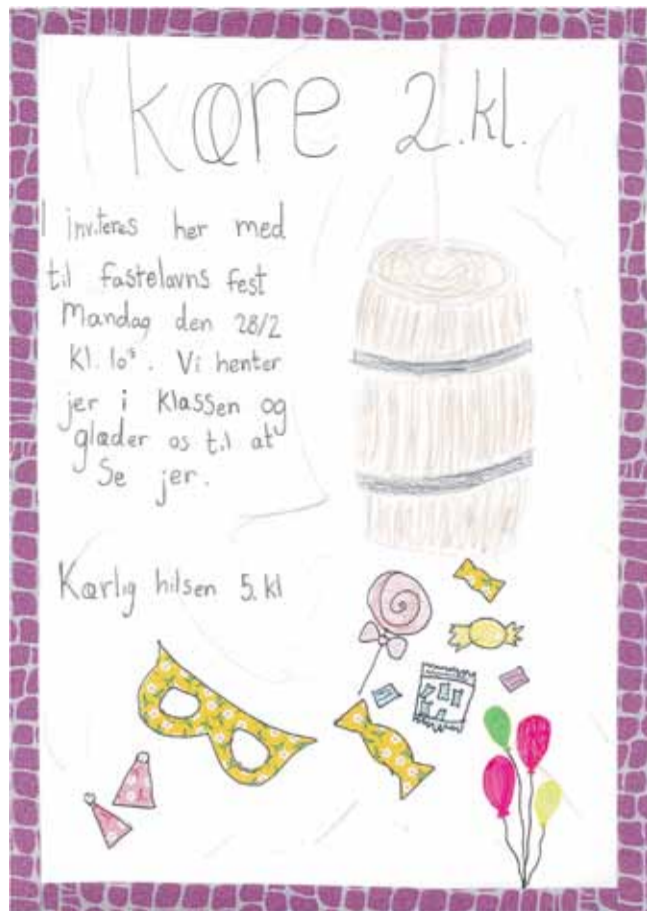 Kære 2.kl.
I inviteres her med
til fastelavns fest
Mandag den 28/2
Kl. 10⁵. Vi henter
jer i klassen og
glæder os til at
se jer.
Kærlig hilsen 5. kl